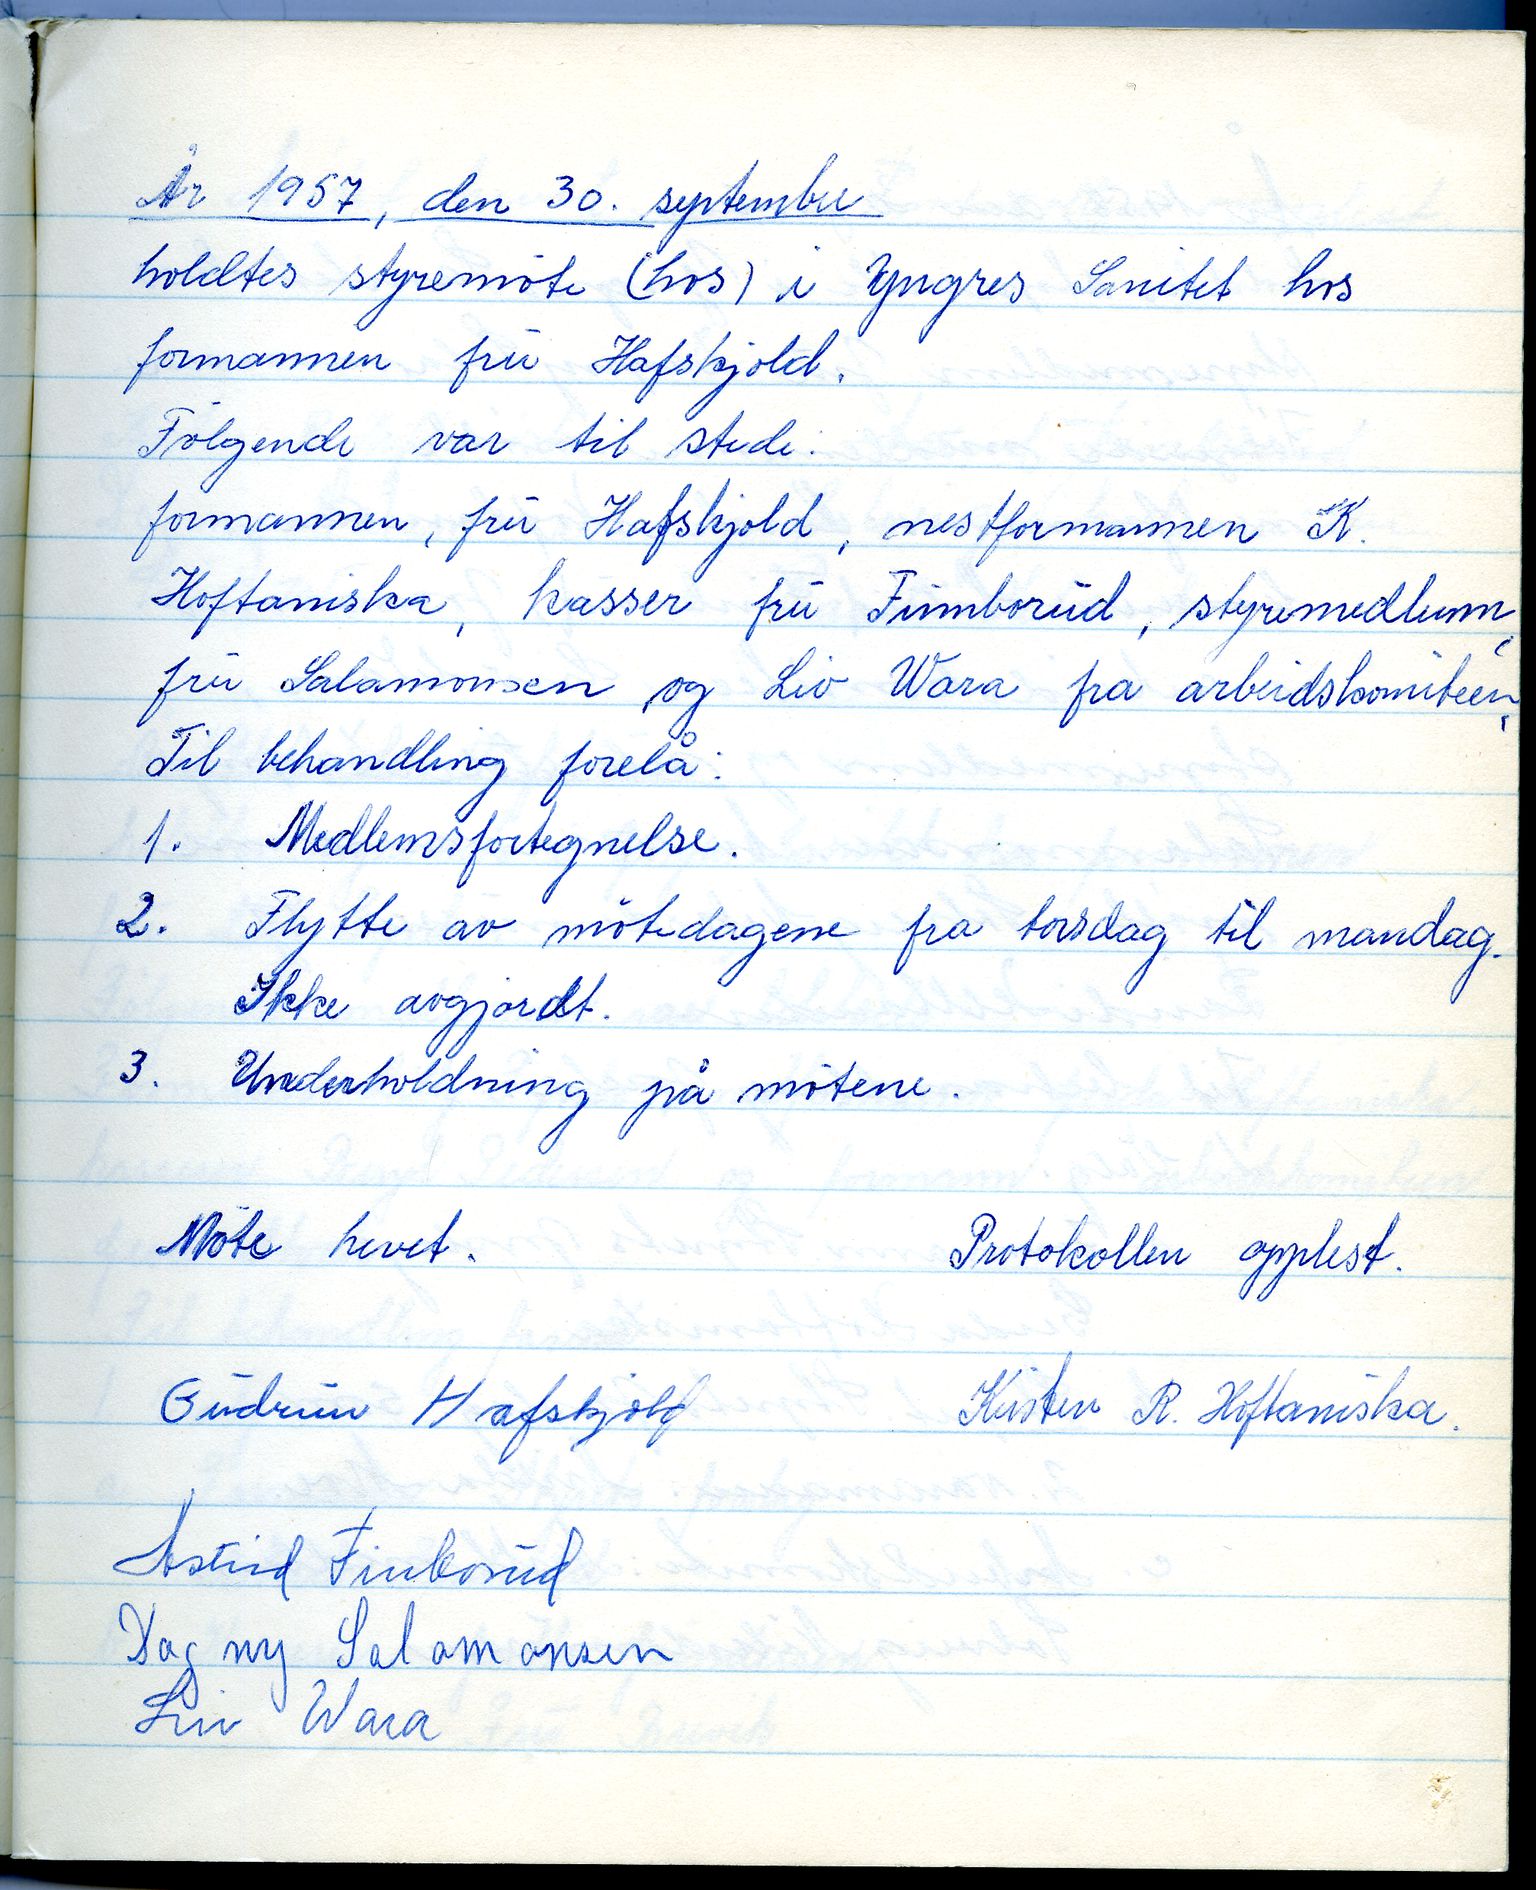 År 1957, den 30. september
holdtes styremöte (hos) i Yngres Sanitet hos
formannen fru Hafskjold.
Følgende var til stede:
formannen, fru Hafskjold, nestformannen K.
Hoftaniska, kasser fru Finnborud, styremedlem,
fru Salamonsen og Liv Wara fra arbeidskomiteen,
Til behandling forelå:
1. Medlemsfortegnelse.
2. Flytte av mötedagene fra torsdag til mandag.
Ikke avgjordt.
3. Underholdning på mötene.
Möte hevet. Protokollen opplest.
Gudrun Hafskjold Kirsten R. Hoftaniska.
Astrid Finborud
Dagny Salamonsen
Liv Wara